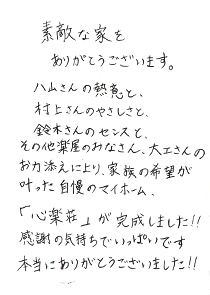 素敵な家を
ありがとうございます。
ハムさんの熱意と、
村上さんのやさしさと、
鈴木さんのセンスと、
その他楽屋のみなさん、大工さんの
お力添えにより、家族の希望が
叶った自慢のマイホーム、
「心楽荘」が完成しました!!
感謝の気持ちでいっぱいです
本当にありがとうございました!!